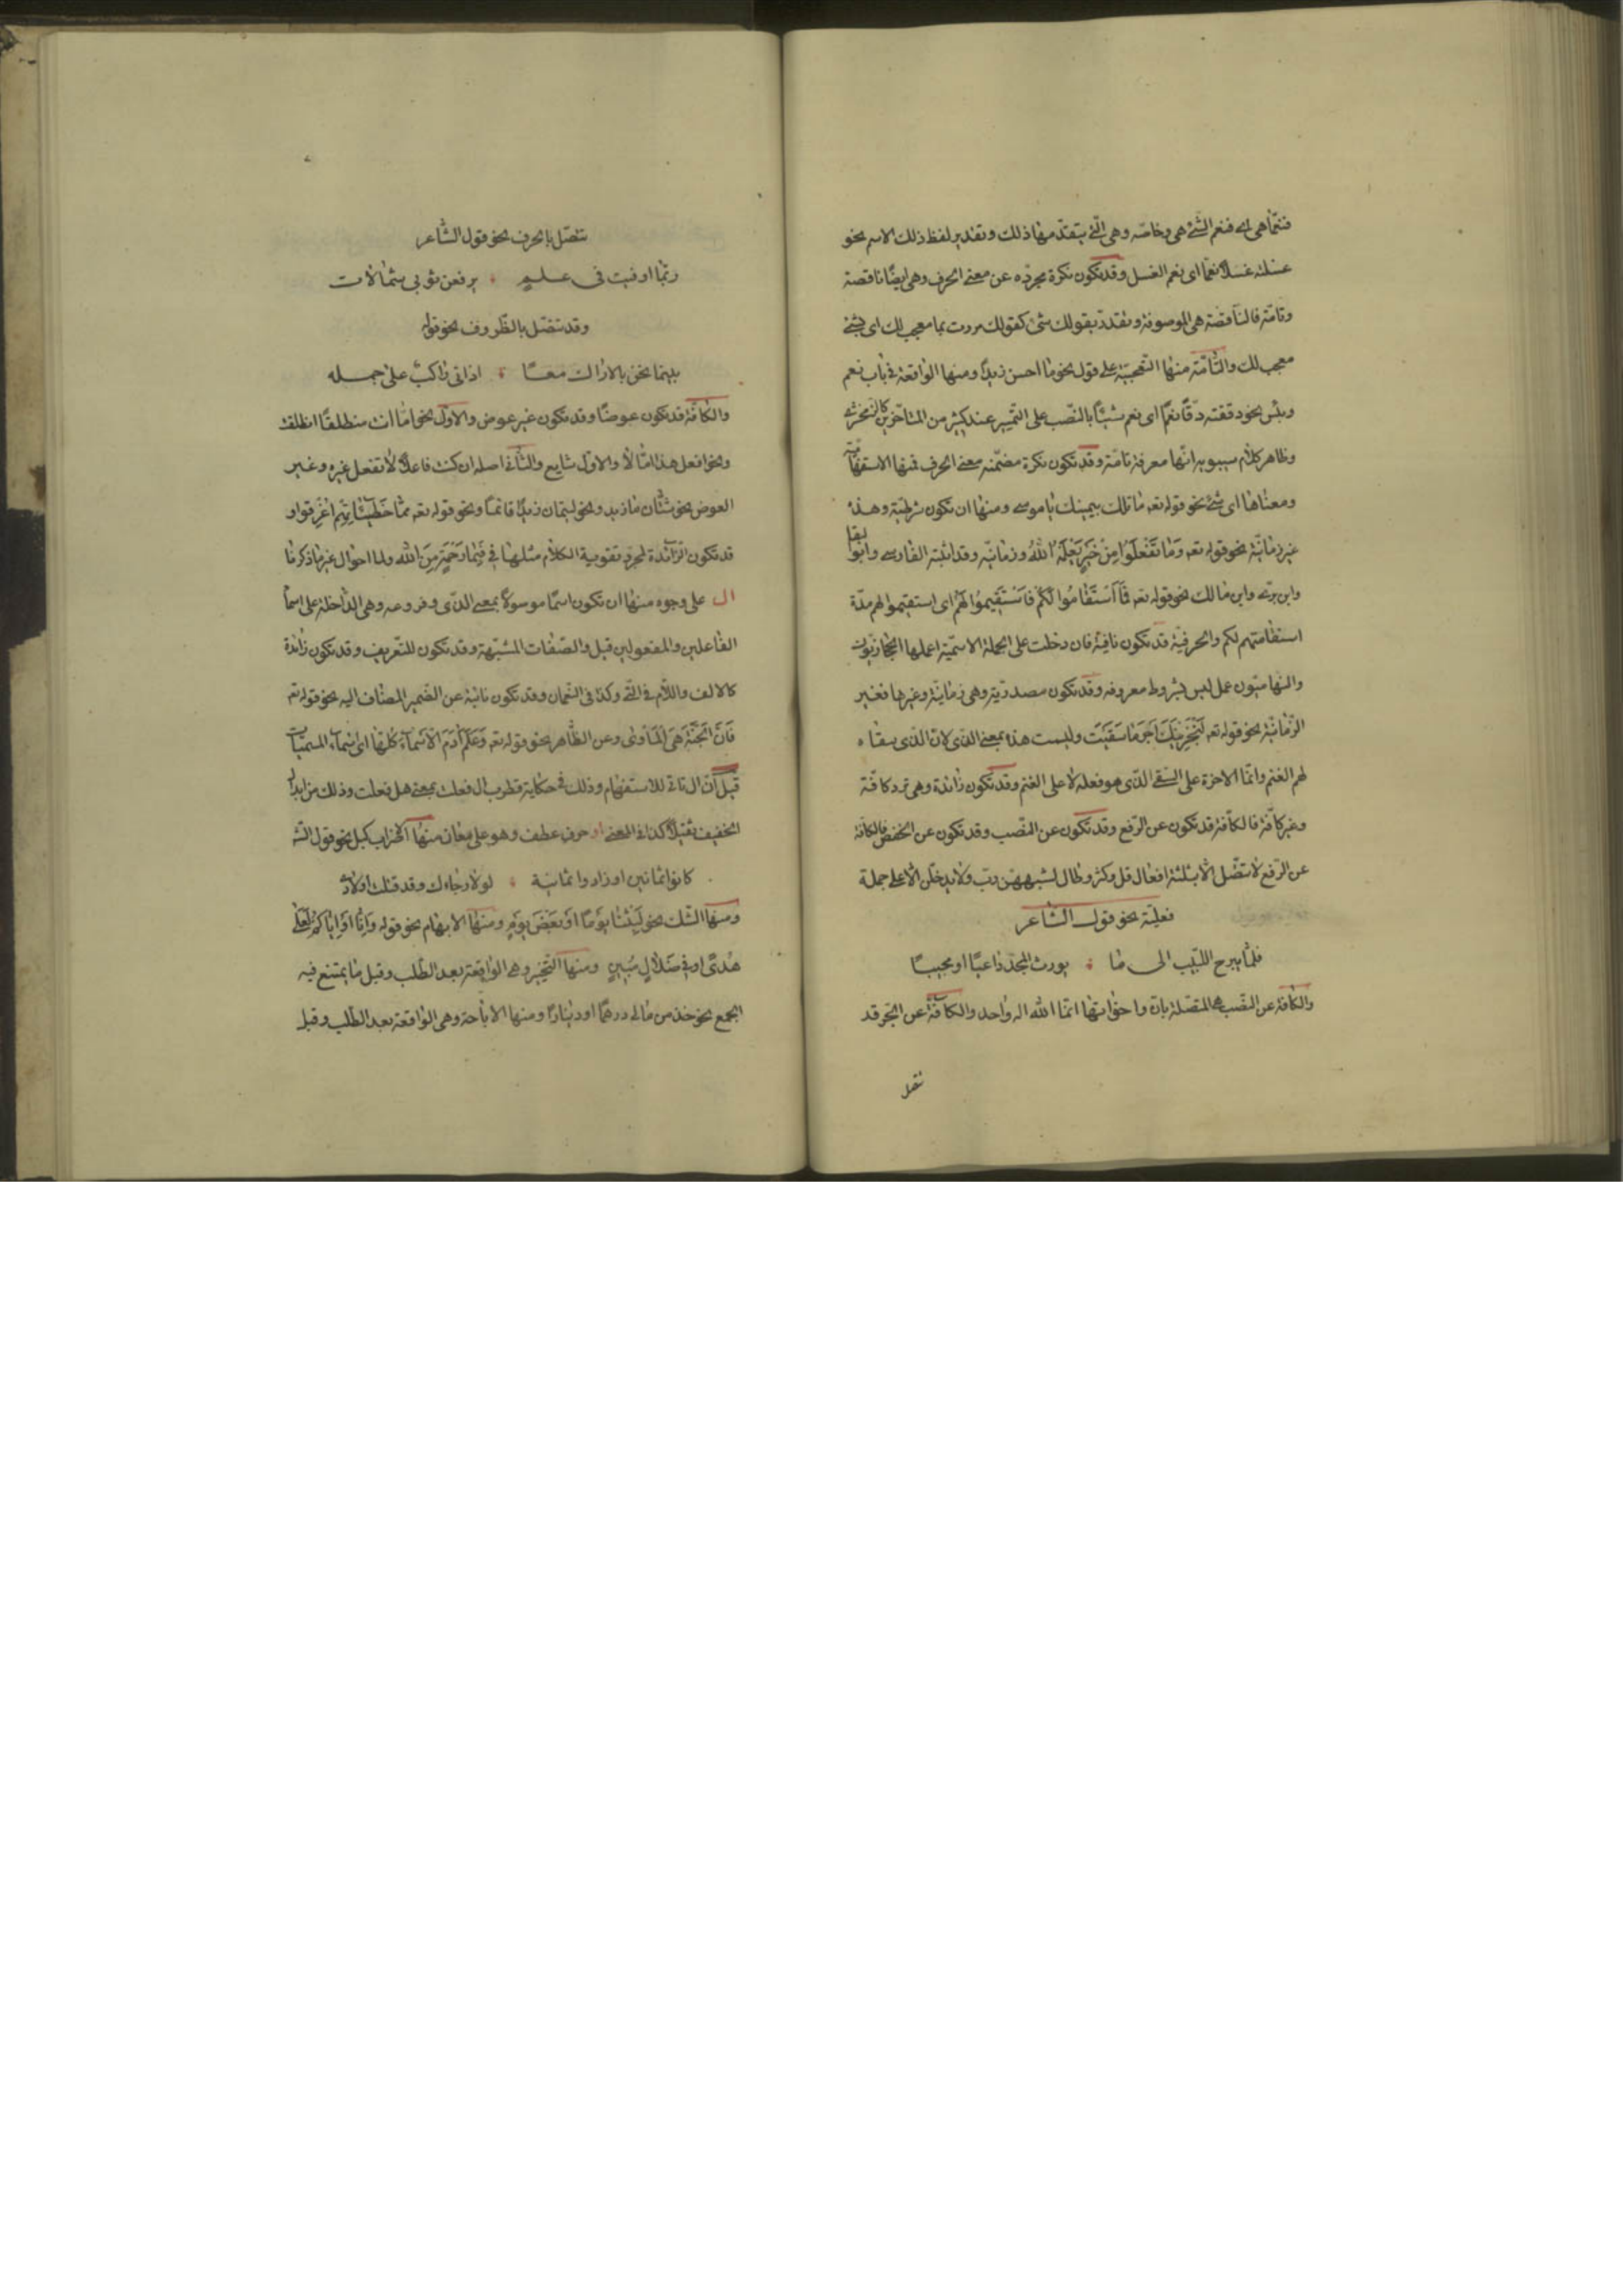 فنعّما هى اى فنعم الشئ هى وخاصّه وهى الّتى يتقدّمها ذلك وتقدير لفظ ذلك الاسم نحو
غسلته غسلًا نعّما اى نعم الغسل وقد تكون نكرة مجرّده عن معنى الحرف وهى ايضًا ناقصة
وتامّة فالنّاقصة هى الموصوفة وتقدّر بقولك شئ كقولك مررت بما معجب لك اى بشئ
معجب لك والتّامّة منها التّعجبيّة على قول نحو ما احسن زيدًا ومنها الواقعة فى باب نعم
وبئس نحو دققته دقّا نعمّا اى نعم شيئًا بالنّصب على التّمييز عند كثير من المتأخّرين كالزمخشرى
وظاهر كلام سيبويه انّها معرفة تامّة وقد تكون نكرة مضمّنه معنى الحرف فمنها الاستفهاميّة
ومعناها اى شئ نحو قوله تعه ما تلك بيمينك يا موسى ومنها ان تكون شرطيّة وهذه
غير زمانيّة نحو قوله تعه وَمَا تَفْعَلُوا مِنْ خَيْرٍ يَعْلَمْهُ اللهُ وزمانيّه وقد اثبته الفارسى وابو البقا
وابن برّى وابن مالك نحو قوله تعه فَمَا اسْتَقَامُوا لَكُمْ فَاسْتَقِيمُوا لَهُمْ اى استقيموا لهم مدّة
استقامتهم لكم والحرفيّة قد تكون نافية فان دخلت على الجملة الاسميّة اعملها الحجازيّون
والتهاميّون عمل ليس بشروط معروفه وقد تكون مصدريّة وهى زمانيّة وغيرها فغير
الزّمانيّة نحو قوله تعه لَيَجْزِيَكَ اَجْرَ مَا سَقَيْتَ وليست هذه بمعنى الّذى لانّ الّذى سقاه
لهم الغنم وانّما الاجرة على السّقى الّذى هو فعله لا على الغنم وقد تكون زائدة وهى ترد كافّة
وغير كافّة فالكافّة قد تكون عن الرّفع وقد تكون عن النّصب وقد تكون عن الخفض فالكافّة
عن الرّفع لا تتّصل الّا بثلثة افعال قلّ وكثر وطال لشبههنّ بربّ ولا يدخلن الّا على جملة
فعليّة نحو قول الشّاعر
قلّما يبرح اللّبيب الى ما ۰ يورث المجد داعيًا او مجيبًا
والكافّة عن النّصب هى المتّصلة بانّ واخواتها انّما الله اله واحد والكافّة عن الجّر قد
تتّصل
تتّصل بالحرف نحو قول الشّاعر
ربّما اوفيت فى علمٍ ۰ يرفعن ثوبى شمالات
وقد تتّصل بالظّروف نحو قوله
بينما نحن بالاراك معًا ۰ اذ اتى راكبٌ على جمله
والكافّة قد تكون عوضًا وقد تكون غير عوض والاوّل نحو امّا انت منطلقًا انطلقت
ونحو افعل هذا امّا لا والاوّل شايع والثّانى اصله ان كنت فاعلًا لا تفعل غيره وغير
العوض نحو شتّان ما زيد ونحو ليتما زيدًا قائمًا ونحو قوله تعه ممّا خَطِيئَاتِهِمْ اُغْرِقُوا و
قد تكون الزّائدة لمجرّد تقوية الكلام مثلها فى فَبِمَا رَحْمَةٍ مِنَ الله ولما احوال غير ما ذكرنا
ال على وجوه منها ان تكون اسمًا موصولًا بمعنى الّذى وفروعه وهى الدّاخلة على اسماء
الفاعلين والمفعولين قيل والصّفات المشبّهة وقد تكون للتّعريف وقد تكون زائدة
كالالف واللّام فى الّتى وكذا فى النّعمان وقد تكون نائبة عن الضّمير المضاف اليه نحو قوله تعه
فَاِنَّ الجَنَّةَ هِىَ الْمَأْوٰى وعن الظّاهر نحو قوله تعه وَعَلَّمَ آدَمَ الاَسْمَآءَ كُلَّهَا اى اسمآء المسمّيات
قيل انّ ال تاتى للاستفهام وذلك فى حكاية قطرب ال فعلت بمعنى هل فعلت وذلك من ابدال
الخفيف ثقيلًا كذا فى المغنى او حرف عطف وهو على معان منها الاضراب كبل نحو قول الشّه
كانوا ثمانين او زادوا ثمانية ۰ لولا رجاءك وقد قتلت اولادى
ومنها الشّك نحو لَبِثْنَا يَوْمًا اَوْ بَعْضَ يَوْمٍ ومنها الابهام نحو قوله وَاِنَّا اَوْ اِيَّاكُمْ لَعَلٰى
هُدًى او فى ضَلَالٍ مُبِينٍ ومنها التّخيير وهى الواقعة بعد الطّلب وقبل ما يمتنع فيه
الجمع نحو خذ من مالى درهمًا او دينارًا ومنها الاباحة وهى الواقعة بعد الطّلب وقبل